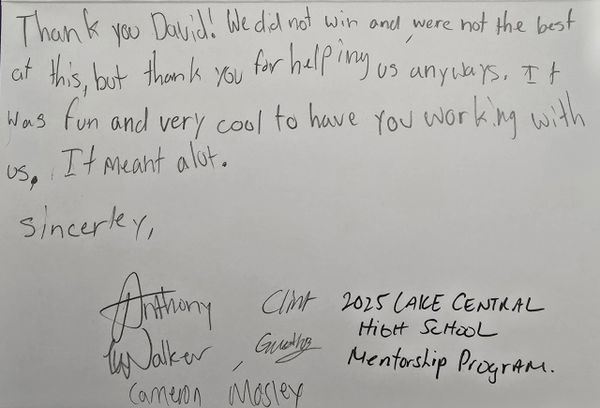 Thank you David! We did not win and were not the best
at this, but thank you for helping us anyways. It
was fun and very cool to have you working with
us. It meant alot.
Sincerley,
Anthony
Walker
Clint
Cameron Mosley
2025 LAKE CENTRAL
HIGH SCHOOL
Mentorship Program.